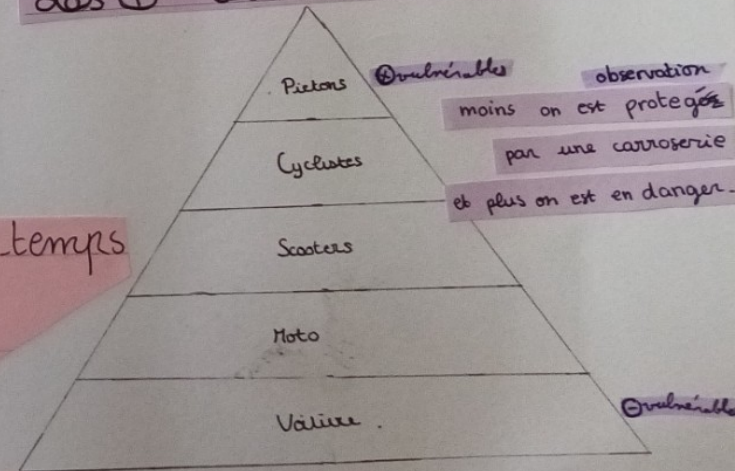 Pietons
⊕vulnérables
observation
moins on est protegés
par une carroserie
et plus on est en danger.
Cyclistes
temps
Scooters
Moto
Voiture.
⊖vulnérable